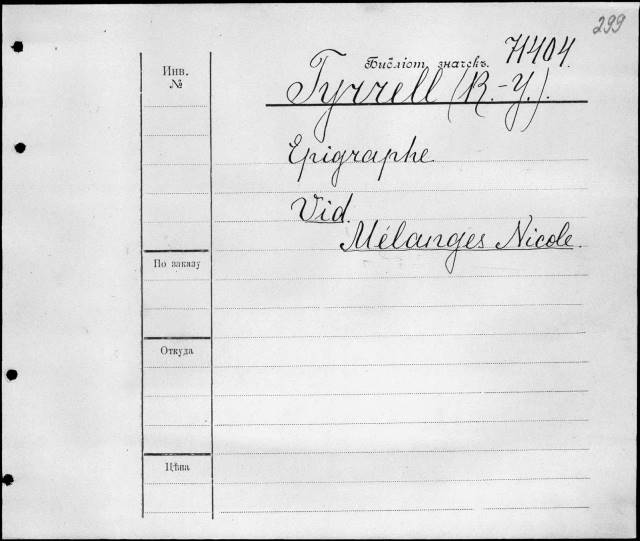 299
Библіот. значекъ. 71404.
Инв. №
Tyrrell (R.-Y.).
Epigraphe.
Vid.
Mélanges Nicole.
По заказу
Откуда
Цѣна